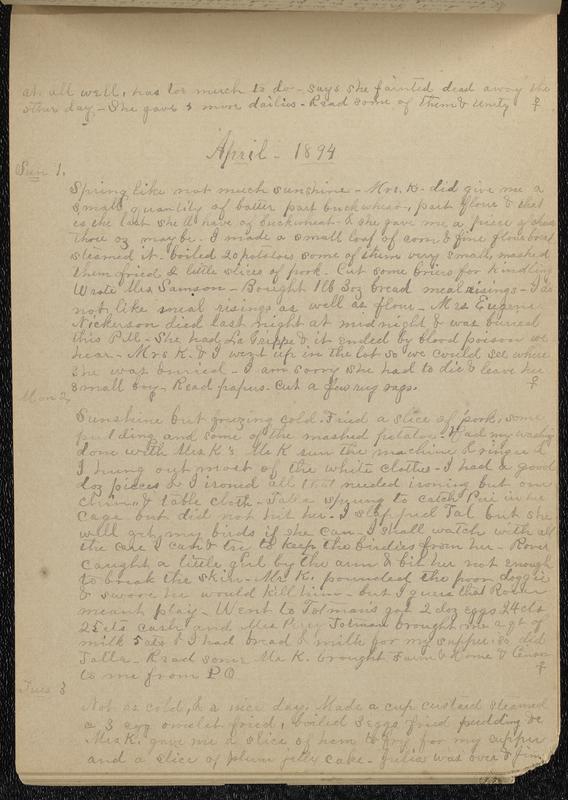 at all well, has too much to do - says she fainted dead away the
other day - She gave 3 more dailies - Read some of them & Unity ♀
April - 1894
Sun 1.
Spring like not much sunshine - Mrs. K. did give me a
small quantity of batter part buckwheat, part flour & that
is the last she'll have of buckwheat - & she gave me a piece of
three oz maybe. I made a small loaf of corn & fine flour bread
steamed it - boiled 20 potatoes some of them very small, mashed
them fried 2 little slices of pork. Cut some briers for kindling
Wrote Mrs Samson - Bought 1 lb 3 oz bread meal risings - I do
not like meal risings as well as flour - Mrs Eugene
Nickerson died last night at midnight & was buried
this P.M. - She had La Grippe & it ended by blood poison we
hear - Mrs K. & I went up in the lot so we could see where
she was buried - I am sorry she had to die & leave her
small boy - Read papers. Cut a few rug rags. ♀
Mon 2,
Sunshine but freezing cold. Fried a slice of pork, some
pudding and some of the mashed potatoe. Had my washing
done with Mrs K's Mr K run the machine & ringer &
I hung out most of the white clothes - I had a good
doz pieces & I ironed all that needed ironing but one
& table cloth - Talla sprung to catch Peri in her
cage but did not hit her - I slapped Tal but she
will get my birds if she can - I shall watch with all
the care I can & try to keep the birdies from her - Rover
caught a little girl by the arm & bit her not enough
to break the skin - Mr K. pounded the poor doggie
& swore he would kill him - but I guess that Rover
meant play - Went to Tolman's got 2 doz eggs 24 cts
25 cts cash and Mrs Percy Tolman brought me a qt of
milk 5 cts & I had bread & milk for my supper so did
Talla - Read some Mr K. brought Farm & Home &
to me from P O ♀
Tues 3
Not as cold, & a nice day. Made a cup custard steamed
a 3 egg omelet fried, boiled 3 eggs fried pudding &c
Mrs K. gave me a slice of ham to fry for my supper
and a slice of plum jelly cake - Julia was over &